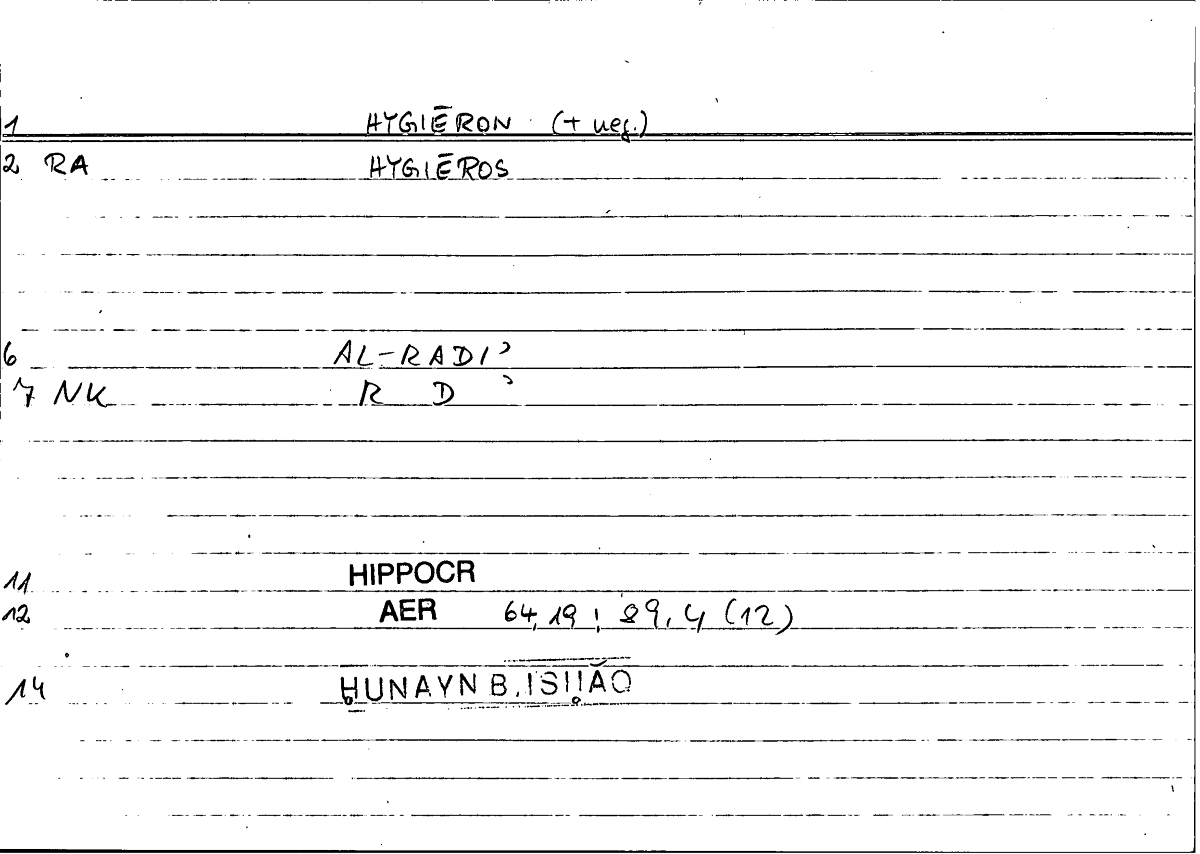 1 HYGIĒRON (+ neg.)
2 RA HYGIĒROS
6 AL-RADIʾ
7 NK R D ʾ
11 HIPPOCR
12 AER 64,19 ; 89,4 (12)
14 ḤUNAYN B. ISḤĀQ